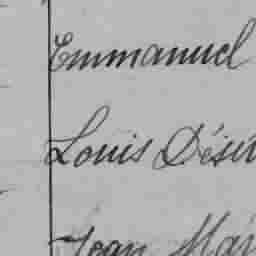 Emmanuel
Louis Désir
Jean Mar